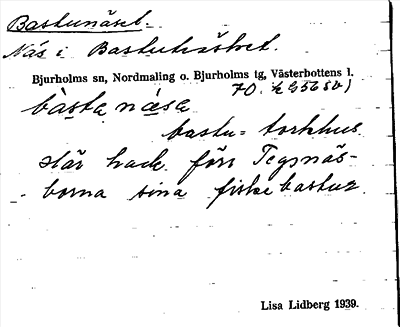 Bastunäset.
Näs i Bastuträsket.
Bjurholms sn, Nordmaling o. Bjurholms tg, Västerbottens l.
70.
bàsta nǽsa
bastu = torkhus
där hade förr Tegsnäs-
borna sina fiskebastur.
Lisa Lidberg 1939.